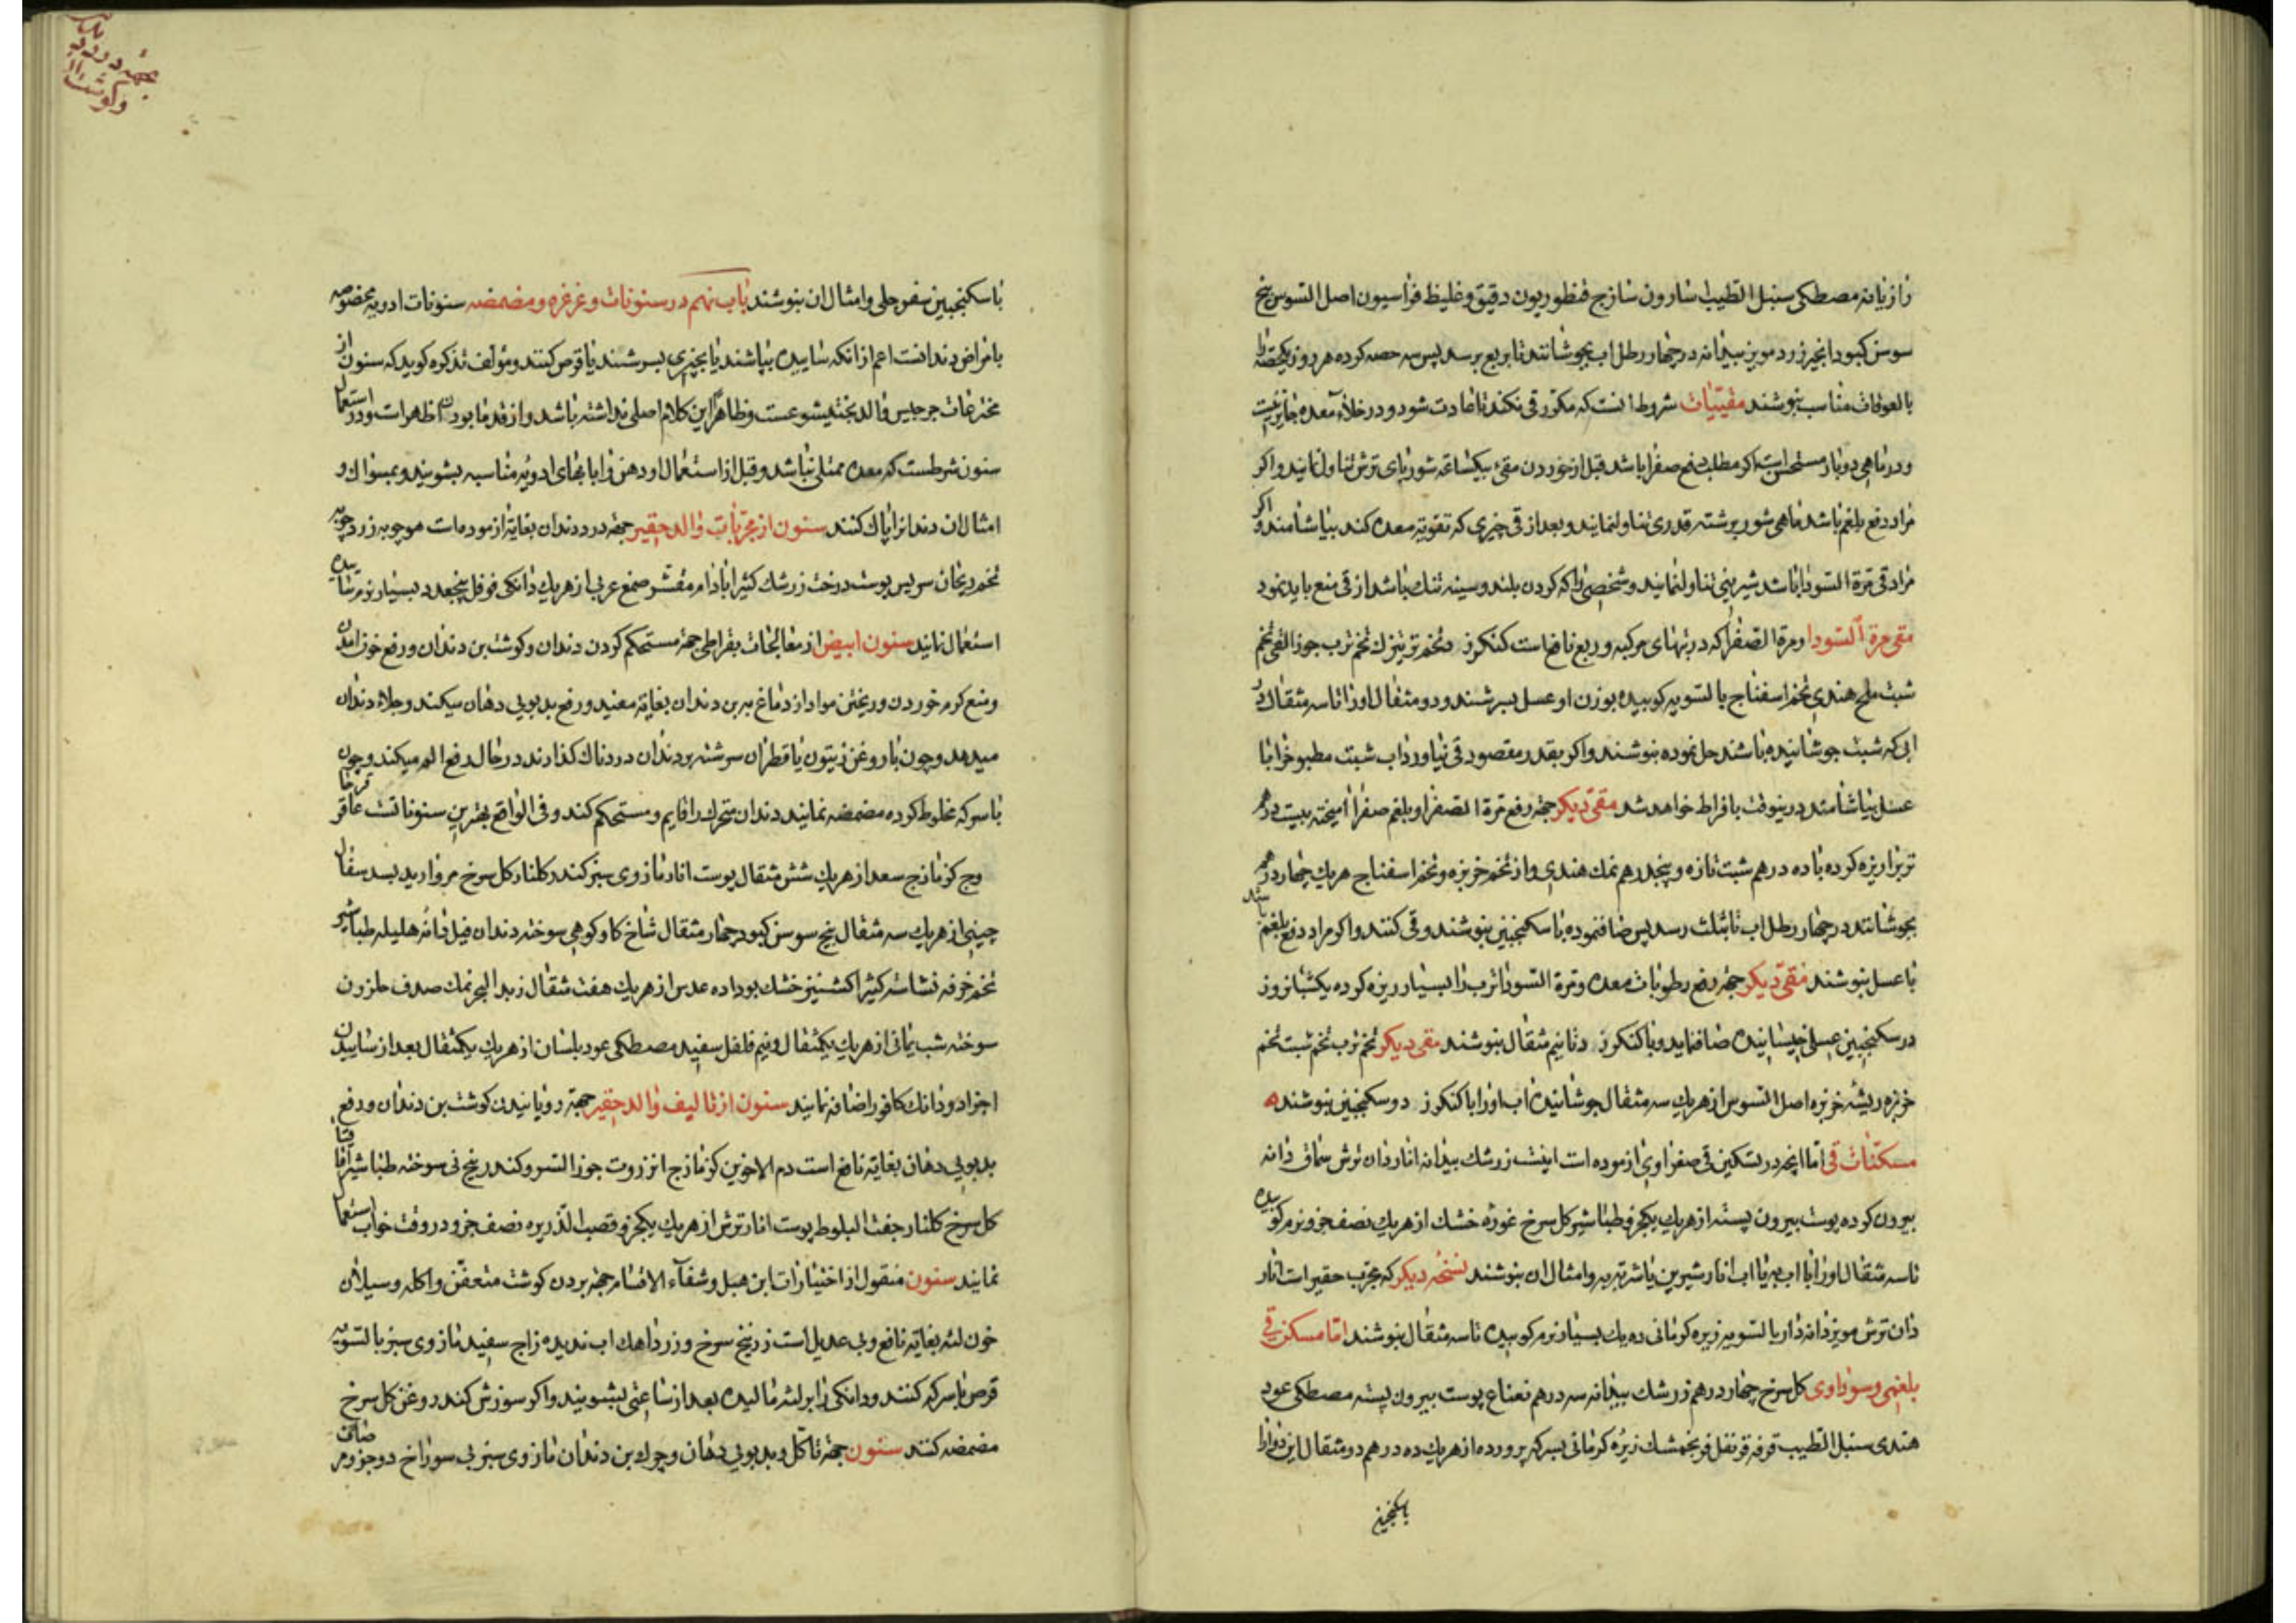 رازیانه مصطکی سنبل الطیب اسارون سازج قنطوریون دقیق و غلیظ فراسیون اصل السوس بیخ
سوسن کبود انجیر زرد مویز بیدانه در چهار رطل اب بجوشانند تا بربع برسد پس سه حصه کرده هر روز یکحصه را
بالعوقات مناسب بنوشند مقیئات شروط انست که مکرر قی نکند تا عادت شود و در خلاء معده جایز نیست
و در ماهی دوبار مستحسن است اکر مطلب دفع صفرا باشد قبل از خوردن مقیء بیکساعة شوربای ترش تناول نمایند و اکر
مراد دفع بلغم باشد ماهی شور برشته قدری تناول نمایند و بعد از قی چیزی که تقویة معده کند بیاشامند و اکر
مراد قی مرة السودا باشد شیرینی تناول نمایند و شخصی را که کردن بلند و سینه تنك باشد از قی منع باید نمود
مقی مرة السودا و مرة الصفرا که در تبهای مرکبه و ربع نافع است کنکرزد تخم ترتیزك تخم ترب جوز القی تخم
شبت ملح هندی تخم اسفناج بالسویه کوبیده بوزن او عسل بسرشند و دو مثقال اورا تا سه مثقال در
ابی که شبت جوشانیده باشند حل نموده بنوشند و اکر بقدر مقصود قی نیاورد اب شبت مطبوخ را با
عسل بیاشامند در ینوقت بافراط خواهد شد مقی دیکر جهة رفع مرة الصفرا و بلغم صفرا امیخته بیست درهم
ترب را ریزه کرده با ده درهم شبت تازه و پنجدرهم نمك هندی و از تخم خربزه و تخم اسفناج هر یك چهار درهم
بجوشانند در چهار رطل اب تا بثلث رسد پس صاف نموده با سکنجبین بنوشند و قی کنند و اکر مراد دفع بلغم باشد
با عسل بنوشند مقی دیکر جهة رفع رطوبات معده و مرة السودا ترب را بسیار ریزه کرده یکشبانروز
در سکنجبین عسلی خیسانیده صاف نماید و با کنکرزد تا نیم مثقال بنوشند مقی دیکر تخم ترب تخم شبت تخم
خربزه ریشه خربزه اصل السوس از هر یك سه مثقال جوشانیده اب اورا با کنکرزد و سکنجبین بنوشند
مسکنات قی اما انچه در تسکین قی صفراوی ازموده است اینست زرشك بیدانه اناردان ترش سماق دانه
بیرون کرده پوست بیرون پسته از هر یك یکجزو طباشیر کل سرخ غوره خشك از هر یك نصف جزو نرم کوبیده
تا سه مثقال اورا با اب به یا اب انار شیرین یا شربت به و امثال ان بنوشند نسخه دیکر که مجرب حقیر است انار
دان ترش مویز دانه دار بالسویه زیره کرمانی ده یك بسیار نرم کوبیده تا سه مثقال بنوشند اما مسکن قی
بلغمی و سوداوی کل سرخ چهار درهم زرشك بیدانه سه درهم نعناع پوست بیرون پسته مصطکی عود
هندی سنبل الطیب قرفه قرنفل فرنجمشك زیره کرمانی بسرکه پرورده از هر یك ده درهم دو مثقال این دوا را
باسکنجبین
با سکنجبین سفرجلی و امثال ان بنوشند باب نهم در سنونات و غرغره و مضمضه سنونات ادویه مخصوصه
بامراض دندانست اعم از انکه ساییده بپاشند یا بچیزی بسرشند یا قرص کنند و مؤلف تذکره کوید که سنون از
مخترعات جرجیس والد بختیشوعست و ظاهرا این کلام اصلی نداشته باشد و از قدما بودن اظهر است و در استعمال
سنون شرطست که معده ممتلی نباشد و قبل از استعمال او دهن را با بهای ادویه مناسبه بشویند و بمسواك و
امثال ان دندانرا پاك کنند سنون از مجربات والد حقیر جهة درد دندان بغایة ازموده است مو چوبه زرد چوبه
تخم ریحان سریس پوست درخت زرشك کتیرا بادام مقشر صمغ عربی از هر یك دانکی فوفل پنجعدد بسیار نرم ساییده
استعمال نمایند سنون ابیض از معالجات بقراطی جهة مستحکم کردن دندان و کوشت بن دندان و رفع خون امدن
و منع کرم خوردن و ریختن مواد از دماغ به بن دندان بغایة مفید و رفع بدبویی دهان میکند و جلاء دندان
میدهد و چون با روغن زیتون یا قطران سرشته بر دندان دردناك کذارند در حال رفع الم میکند و چون
با سرکه مخلوط کرده مضمضه نمایند دندان متحرك را قایم و مستحکم کند و فی الواقع بهترین سنوناتست عاقرقرحا
وج کزمازج سعد از هر یك شش مثقال پوست انار مازوی سبز کندر کلنار کل سرخ مروارید بسد سفال
چینی از هر یك سه مثقال بیخ سوسن کبود چهار مثقال شاخ کاو کوهی سوخته دندان فیل دانه هلیله طباشیر
تخم خرفه نشاسته کتیرا کشنیز خشك بو داده عدس از هر یك هفت مثقال زبد البحر نمك صدف حلزون
سوخته شب یمانی از هر یك یکمثقال و نیم فلفل سفید مصطکی عود بلسان از هر یك یکمثقال بعد از ساییدن
اجزا دو دانك کافور اضافه نمایند سنون از تالیف والد حقیر جهة رویانیدن کوشت بن دندان و رفع
بدبویی دهان بغایة نافع است دم الاخوین کزمازج انزروت جوز السرو کندر بیخ نی سوخته طباشیر اقاقیا
کل سرخ کلنار جفت البلوط پوست انار ترش از هر یك یکجزو قصب الذریره نصف جزو در وقت خواب استعمال
نمایند سنون منقول از اختیارات ابن هبل و شفاء الاسقام جهة بردن کوشت متعفن و اکله و سیلان
خون لثه بغایة نافع و بی عدیل است زرنیخ سرخ و زرد اهك اب ندیده زاج سفید مازوی سبز بالسویه
قرص با سرکه کنند و دانکی را بر لثه مالیده بعد از ساعتی بشویند و اکر سوزش کند روغن کل سرخ
مضمضه کنند سنون جهة تاکل و بدبویی دهان و چرك بن دندان مازوی سبز بی سوراخ دو جزو مر صاف